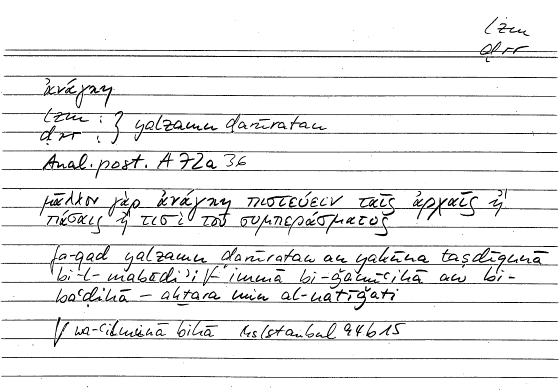 lzm
ḍrr
ἀνάγκη
lzm :
ḍrr : } yalzamu ḍarūratan
Anal. post. A 72a36
μᾶλλον γὰρ ἀνάγκη πιστεύειν ταῖς ἀρχαῖς ἢ
πάσαις ἢ τισὶ τοῦ συμπεράσματος
fa-qad yalzamu ḍarūratan an yakūna taṣdīqunā
bi-l-mabādiʾi √ immā bi-ǧamīʿihā au bi-
baʿḍihā – akṯara min al-natīǧati
√ wa-ʿilmunā bihā Hs Istanbul 94b15